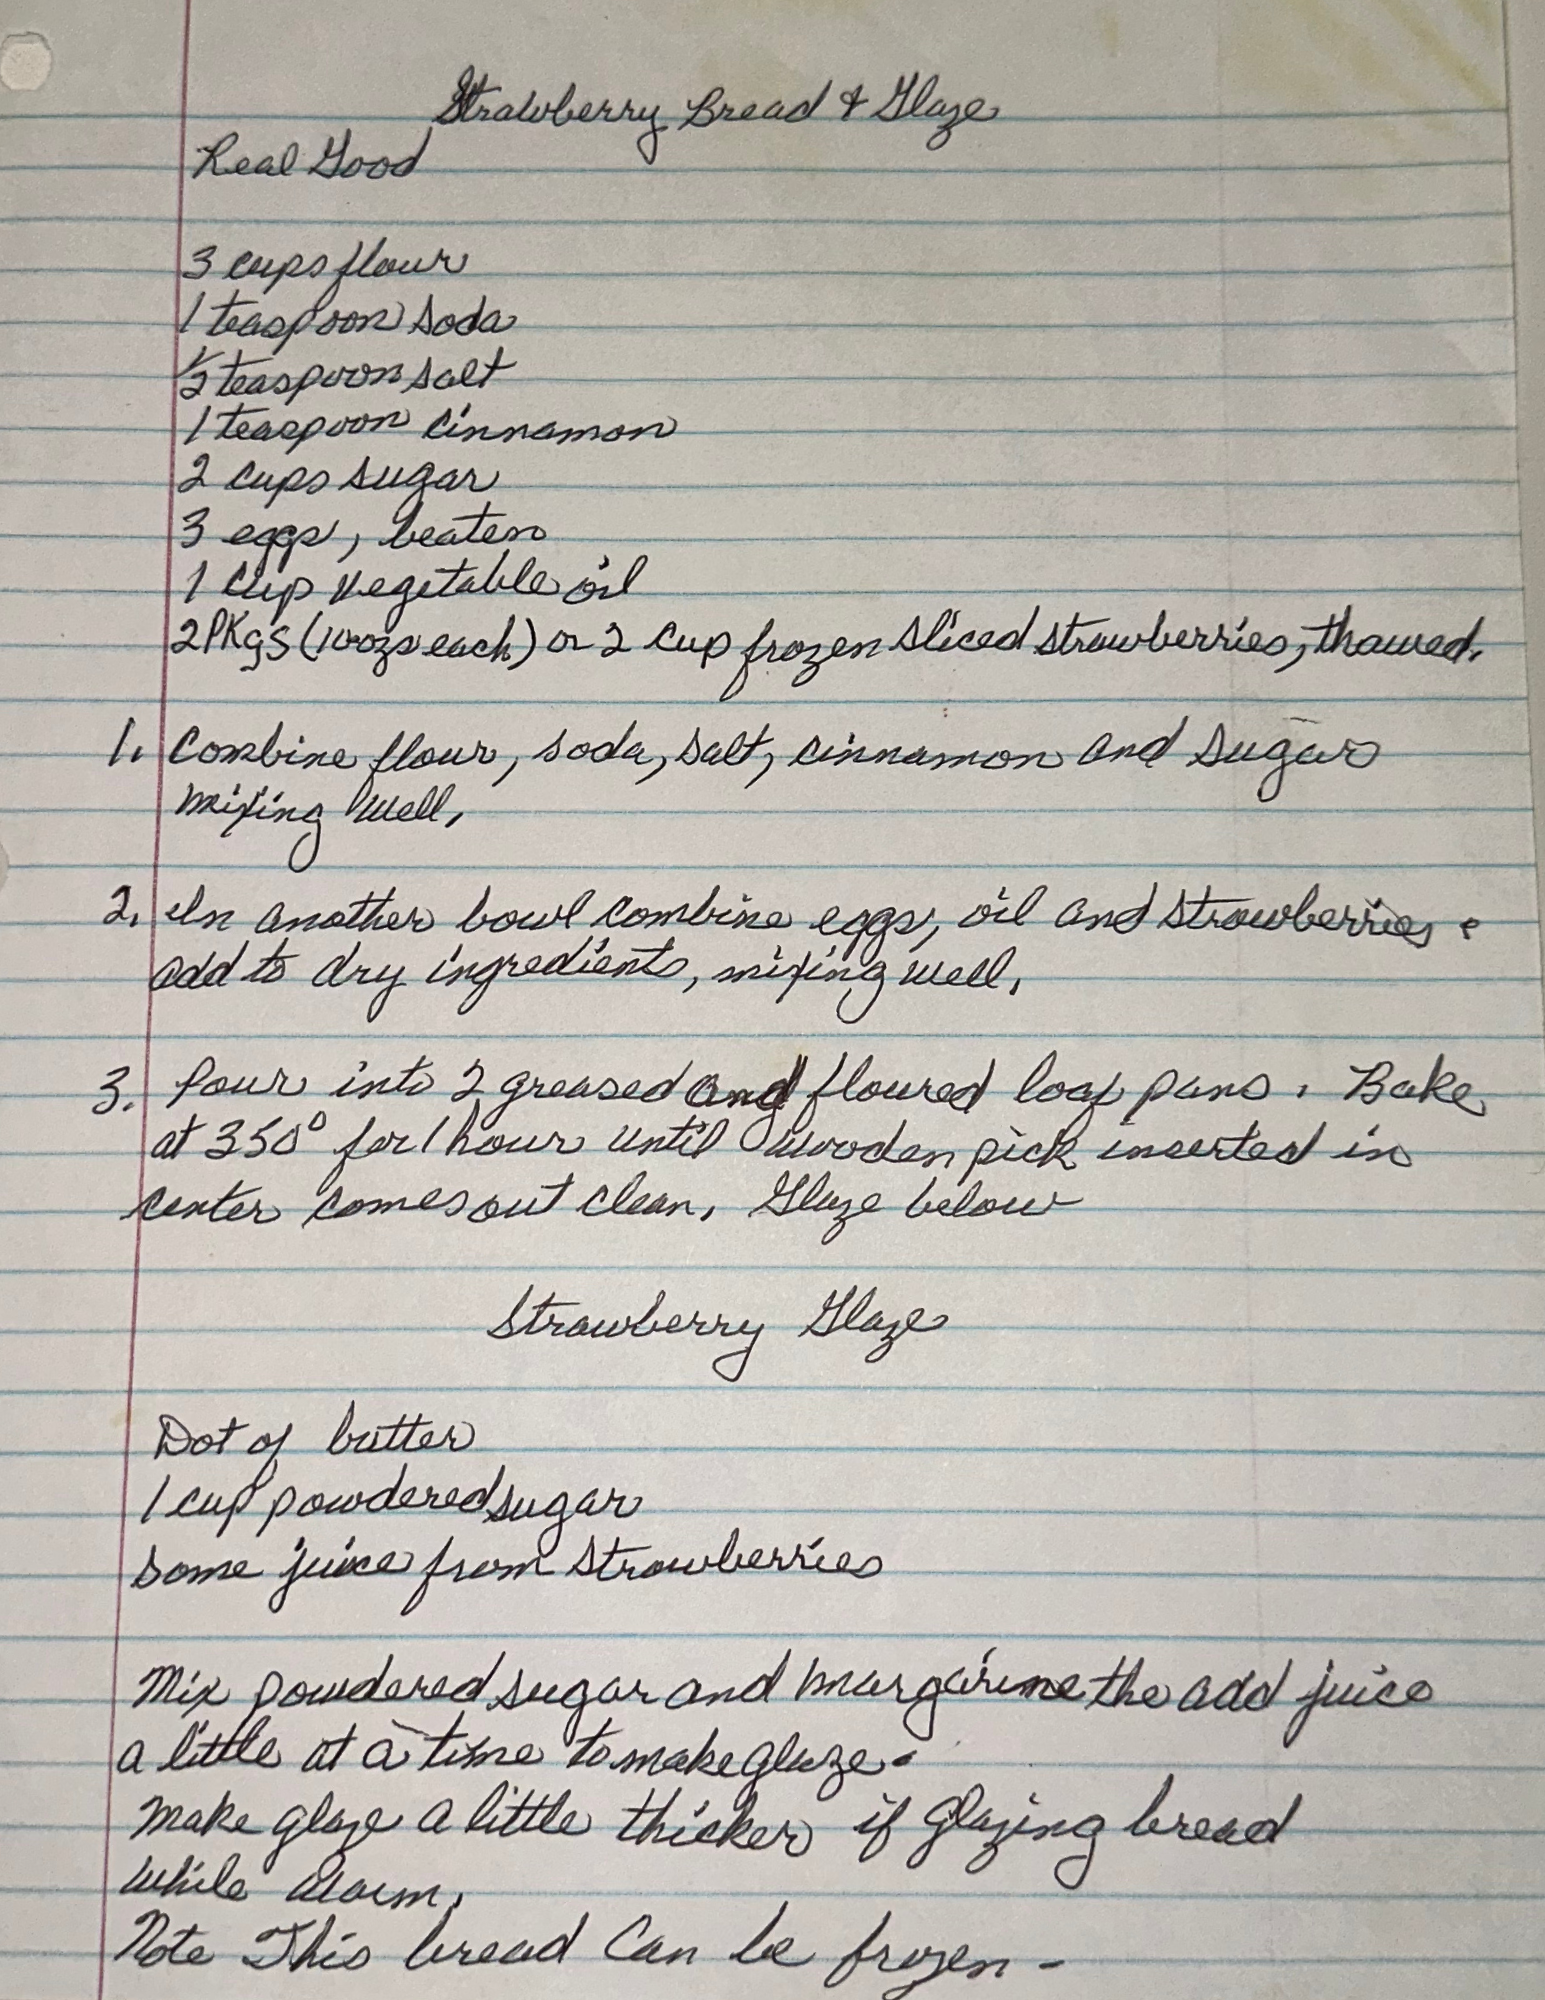 Strawberry Bread & Glaze
Real Good
3 cups flour
1 teaspoon soda
1/2 teaspoon salt
1 teaspoon cinnamon
2 cups sugar
3 eggs, beaten
1 cup vegetable oil
2 PKgs (10 ozs each) or 2 cup frozen sliced strawberries, thawed.
1. Combine flour, soda, salt, cinnamon and sugar
mixing well.
2. In another bowl combine eggs, oil and strawberries.
add to dry ingredients, mixing well.
3. Pour into 2 greased and floured loaf pans. Bake
at 350° for 1 hour until wooden pick inserted in
center comes out clean. Glaze below
Strawberry Glaze
Dot of butter
1 cup powdered sugar
some juice from strawberries
Mix powdered sugar and margarine the add juice
a little at a time to make glaze.
Make glaze a little thicker if glazing bread
while warm.
Note This bread can be frozen -